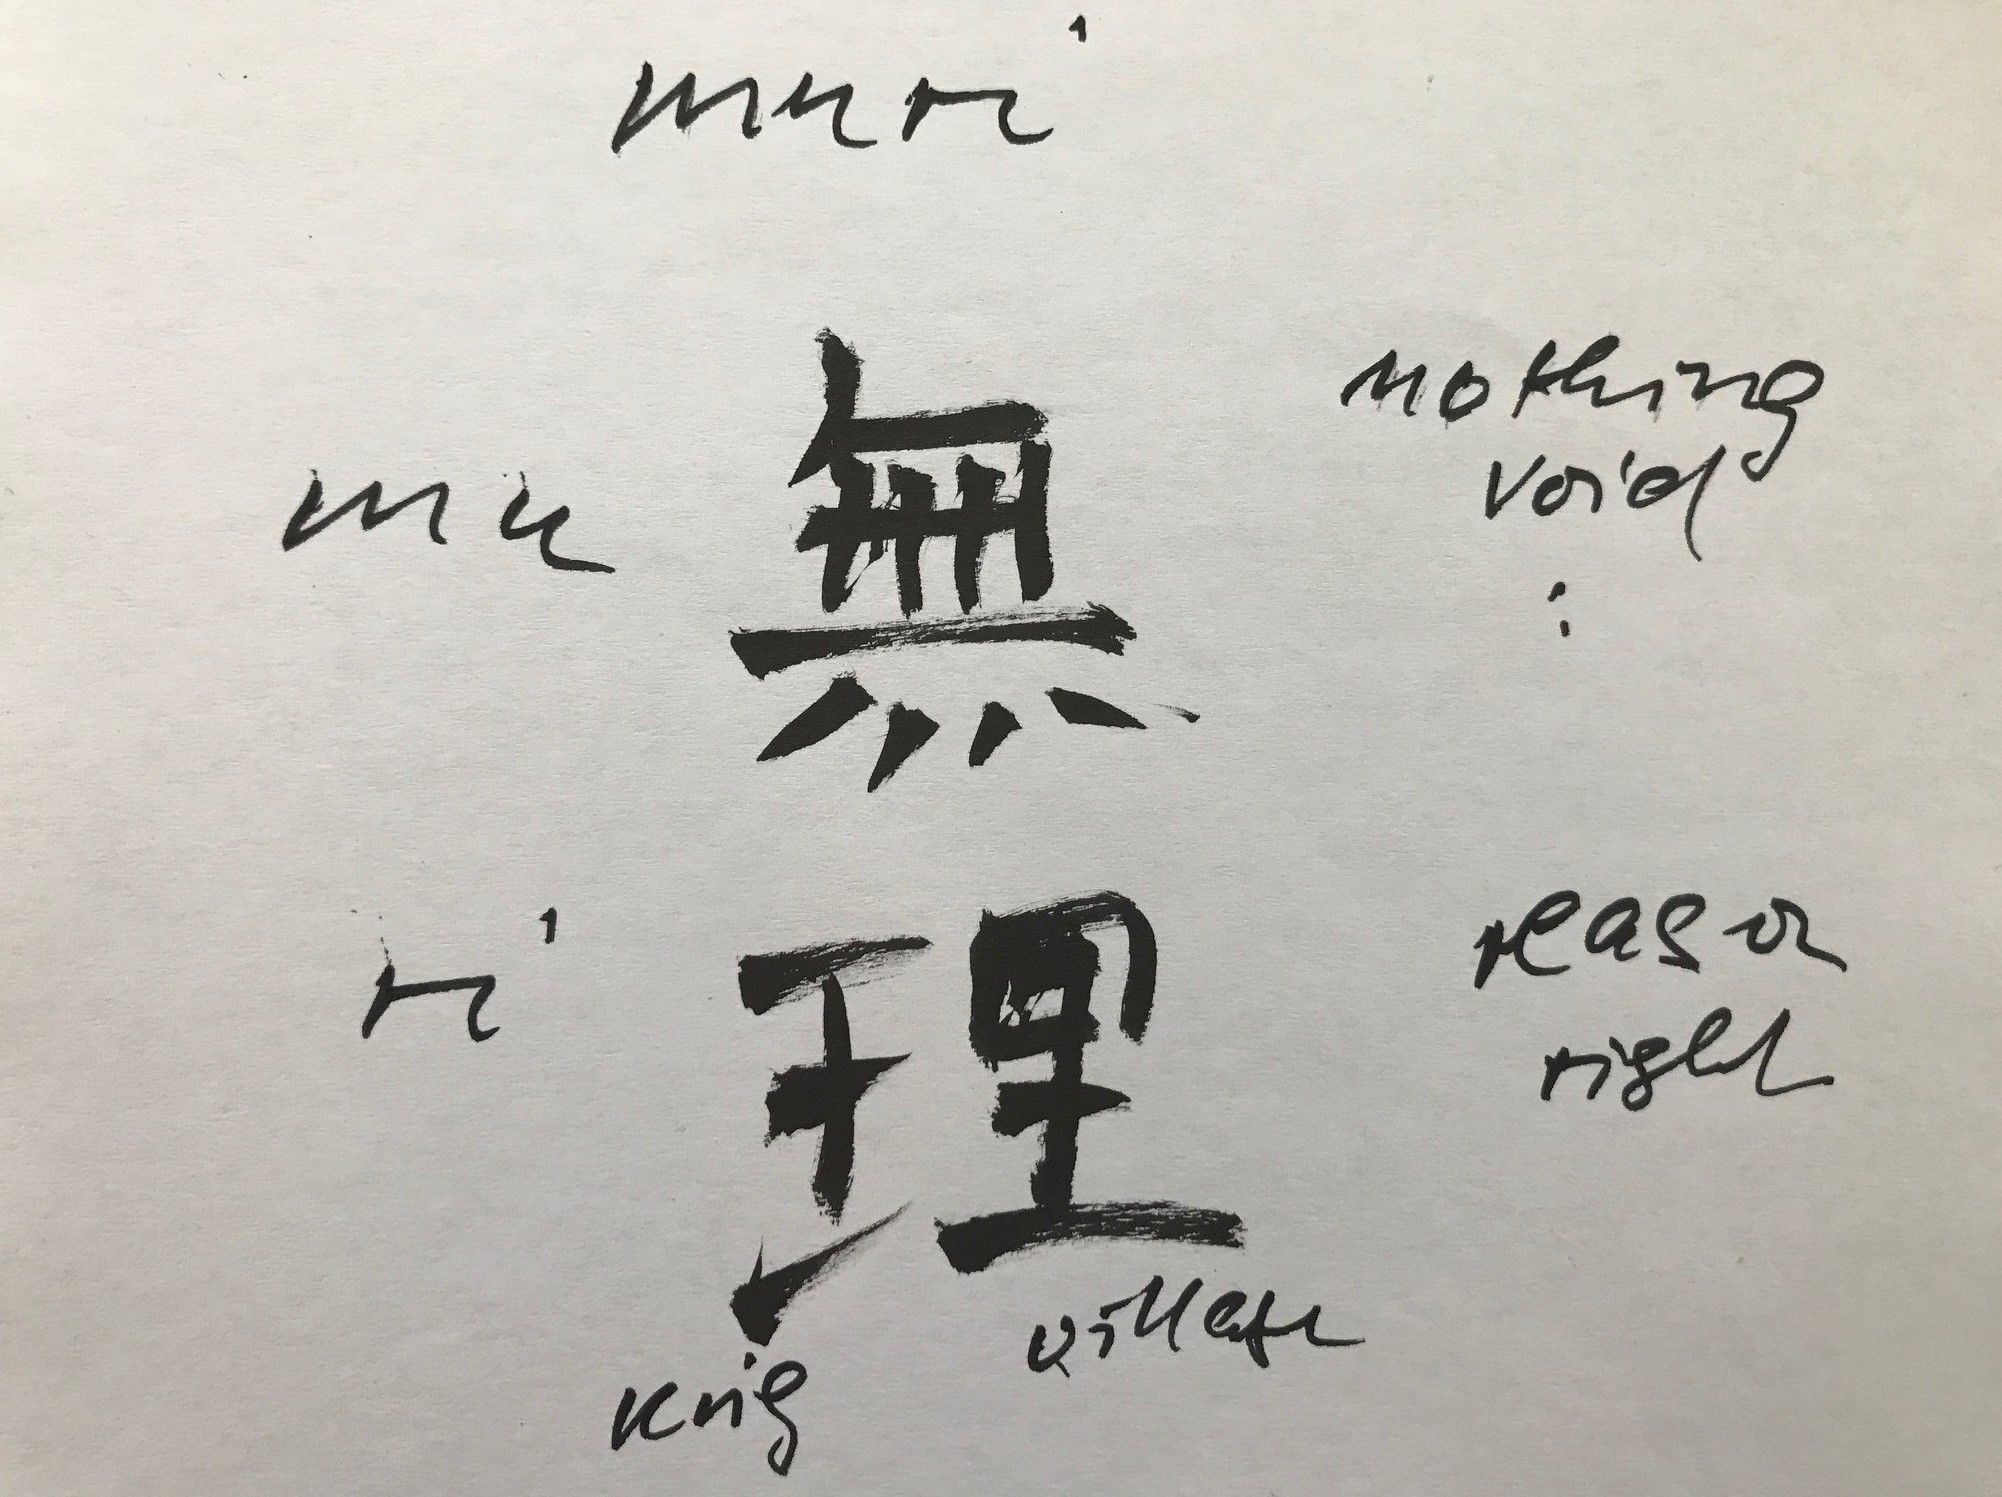 muri
mu 無 nothing
void
:
ri 理 reason
right
village
King